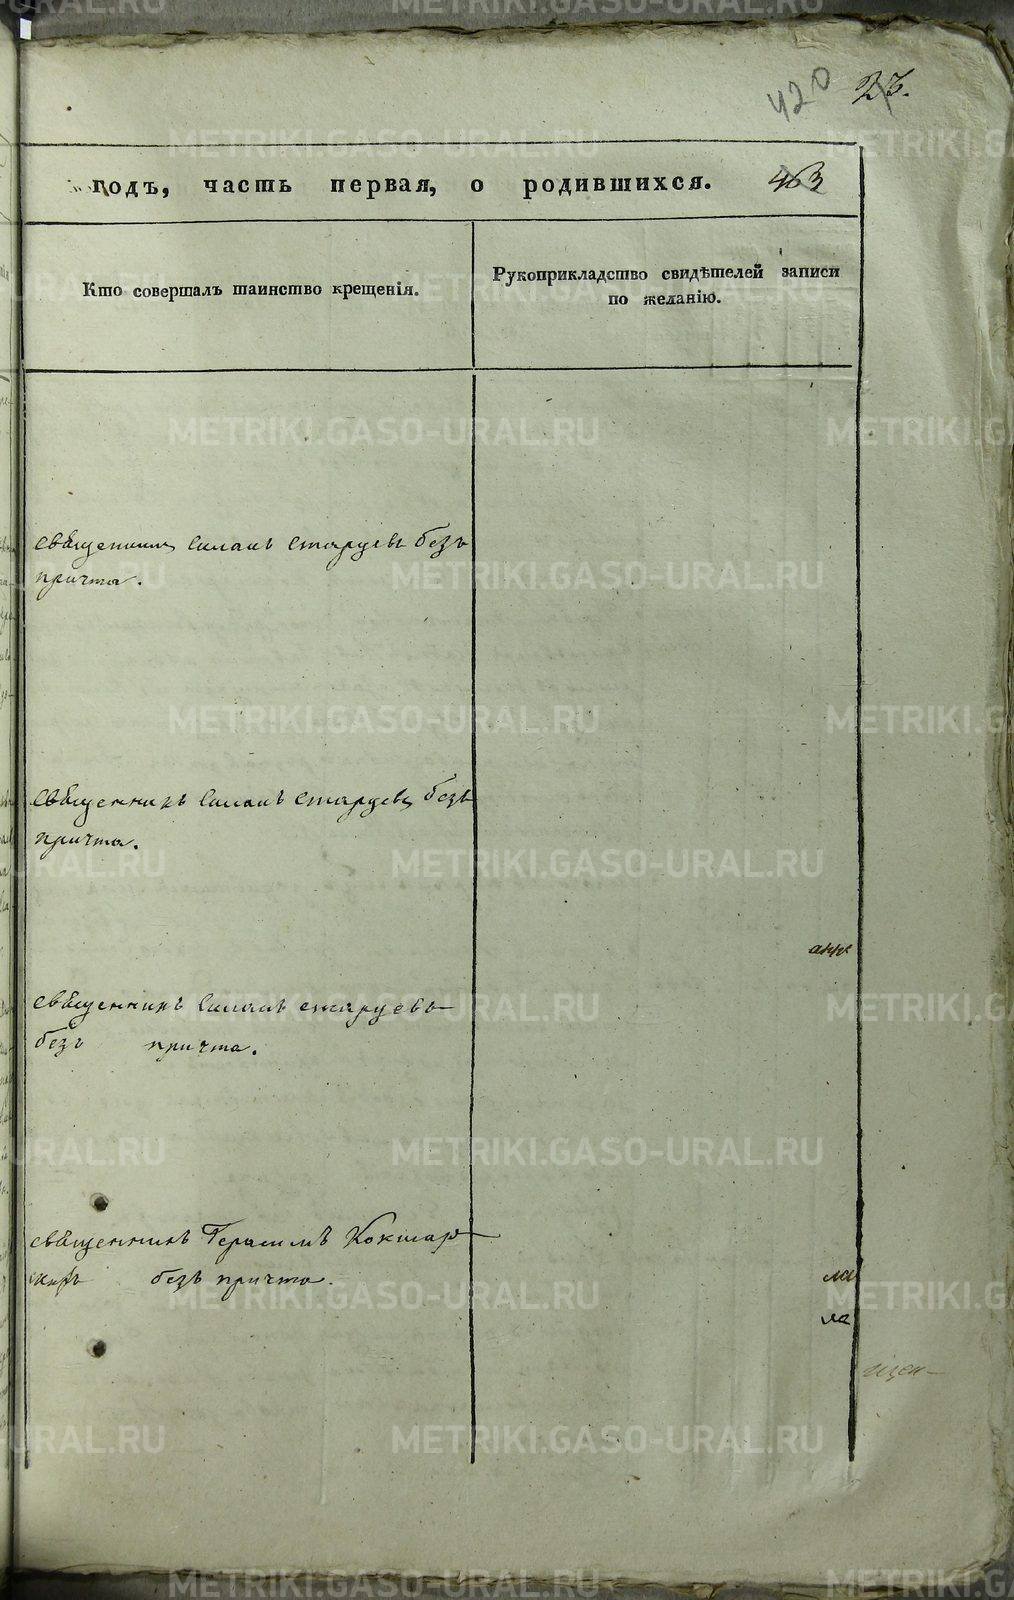 420 23.
годъ, часть первая, о родившихся. 463
Кто совершалъ таинство крещенія.
Рукоприкладство свидѣтелей записи
по желанію.
священникъ Симонъ старцевъ безъ
причта.
священникъ Симонъ старцевъ безъ
причта.
священникъ Симонъ старцевъ
безъ причта.
священникъ Герасимъ Кокшар
безъ причта.
METRIKI.GASO-URAL.RU